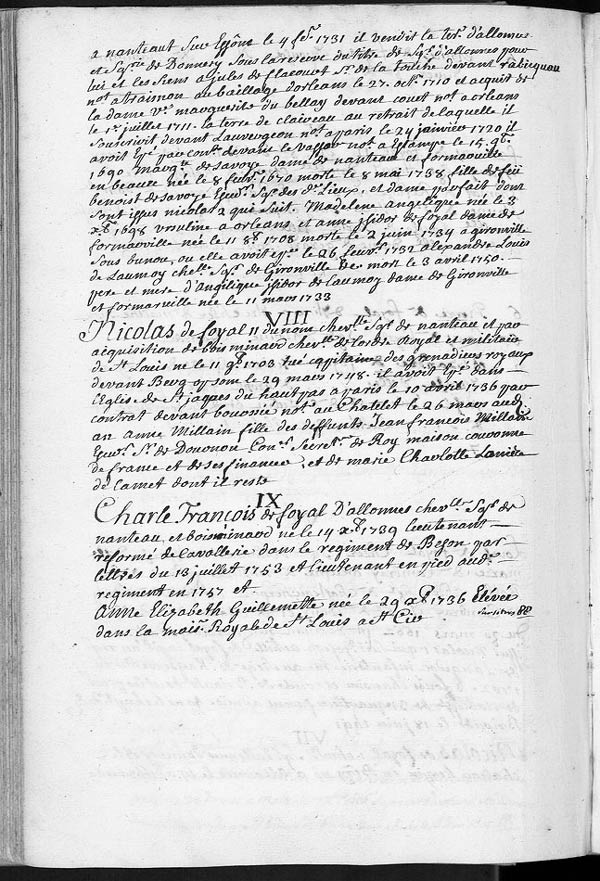 a nanteaut sur Essône le 4 fer. 1731 il vendit la terre d'allonnes
et Sgrie de Donnery sous la reserve du titre de Sgr. d'allonnes pour
lui et les siens a jules de flacourt Sr. de la touche devant rabiquau
not. a trainou au bailliage d'orleans le 27. octb. 1710 et acquit de
la dame ve. marquisite du bellay devant couet not. a orleans
le 1er. juillet 1711. la terre de claireau au retrait de laquelle il
souscrivit devant Lauvergeon not. a paris le 24 janvier 1720 il
avoit epé. par cont. devant le vassor not. a Estampe le 15. 9b.
1690 Margte. de savoye dame de nanteau et formarville
en beauce née le 8 fevr. 1670 morte le 8 mai 1738 fille de feu
benoist de savoye Ecuer. Sgr. des ds. Lieux, et dame parfait dont
sont issus nicolas 2 que suit. Madelene angelique née le 3
xb. 1698 ursuline a orleans et anne isidor de foyal dame de
formarville née le 11 8b. 1708 morte le 2 juin 1734 a gironville
sous bunou, ou elle avoit epé. le 26 fevr. 1732 alexandre Louis
de Launoy chevr. Sgr. de Gironville &c mort le 3 avril 1750.
pere et mere d'Angelique isidor de Launoy dame de Gironville
et formarville née le 11 mars 1733
VIII
Nicolas de foyal II du nom chevlr. Sgr. de nanteau et par
acquisition de bois minard chevlr. de l'ordre Royal et militaire
de St. Louis né le 11 9b. 1703 tué capitaine des grenadiers royaux
devant Berg op som le 29 mars 1748. il avoit epé. dans
l'Eglise de St. jaques du hautpas a paris le 10 avril 1736 par
contrat devant bouronié not. au Chatelet le 26 mars aud.
an anne Millain fille des deffunts Jean françois Millain
Ecuer. Sr. de Douonou Cons. Secretr. du Roy maison couronne
de france et de ses finances, et de marie Charlotte Laniere
de Camet dont il reste
IX
Charle François de foyal D'allonnes chevlr. Sgr. de
nanteau et boisminard né le 14 xb. 1739 lieutenant
reformé de cavallerie dans le regiment de Beson par
lettres du 13 juillet 1753 et lieutenant en pied aud.
regiment en 1757 et
Anne Elizabeth Guillemette née le 29 xb. 1736 Elévée
dans la mais. Royale de St. Louis a St. Cir